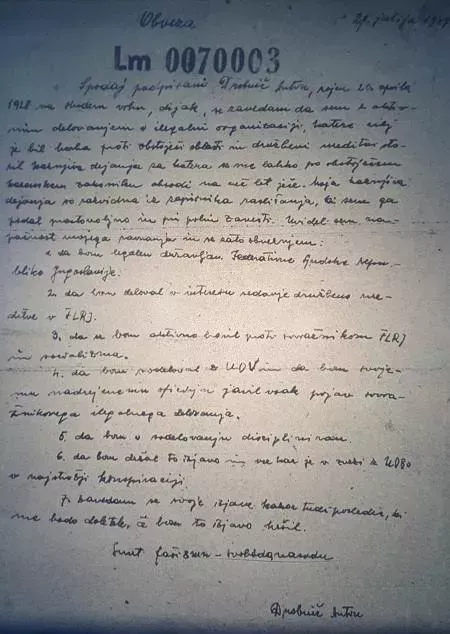 Obveza
29. julija 19
Lm 0070003
Spodaj podpisani Drobnič Anton, rojen 20. aprila
1928 na Hudem vrhu, dijak, se zavedam da sem z aktiv-
nim delovanjem v ilegalni organizaciji, katere cilj
je bil borba proti obstoječi oblasti in družbeni ureditvi sto-
ril kaznjiva dejanja za katera se me lahko po obstoječem
kazenskem zakoniku obsodi na več let ječe. Moja kaznjiva
dejanja so razvidna iz zapisnika zaslišanja, ki sem ga
podal prostovoljno in pri polni zavesti. Uvidel sem na-
pačnost mojega ravnanja in se zato obvezujem:
1. da bom legalen državljan Federativne Ljudske repu-
blike Jugoslavije.
2. da bom deloval v interesu sedanje družbene ure-
ditve v FLRJ.
3. da se bom aktivno boril proti sovražnikom FLRJ
in socializma.
4. da bom sodeloval z UDV in da bom svoje-
mu nadrejenemu oficirju javil vsak pojav sovra-
žnikovega ilegalnega delovanja.
5. da bom v sodelovanju discipliniran.
6. da bom držal to izjavo in vse kar je v zvezi z UDBo
v najstrožji konspiraciji.
7. Zavedam se svoje izjave kakor tudi posledic, ki
me bodo doletele, če bom to izjavo kršil.
Smrt fašizmu - svoboda narodu
Drobnič Anton